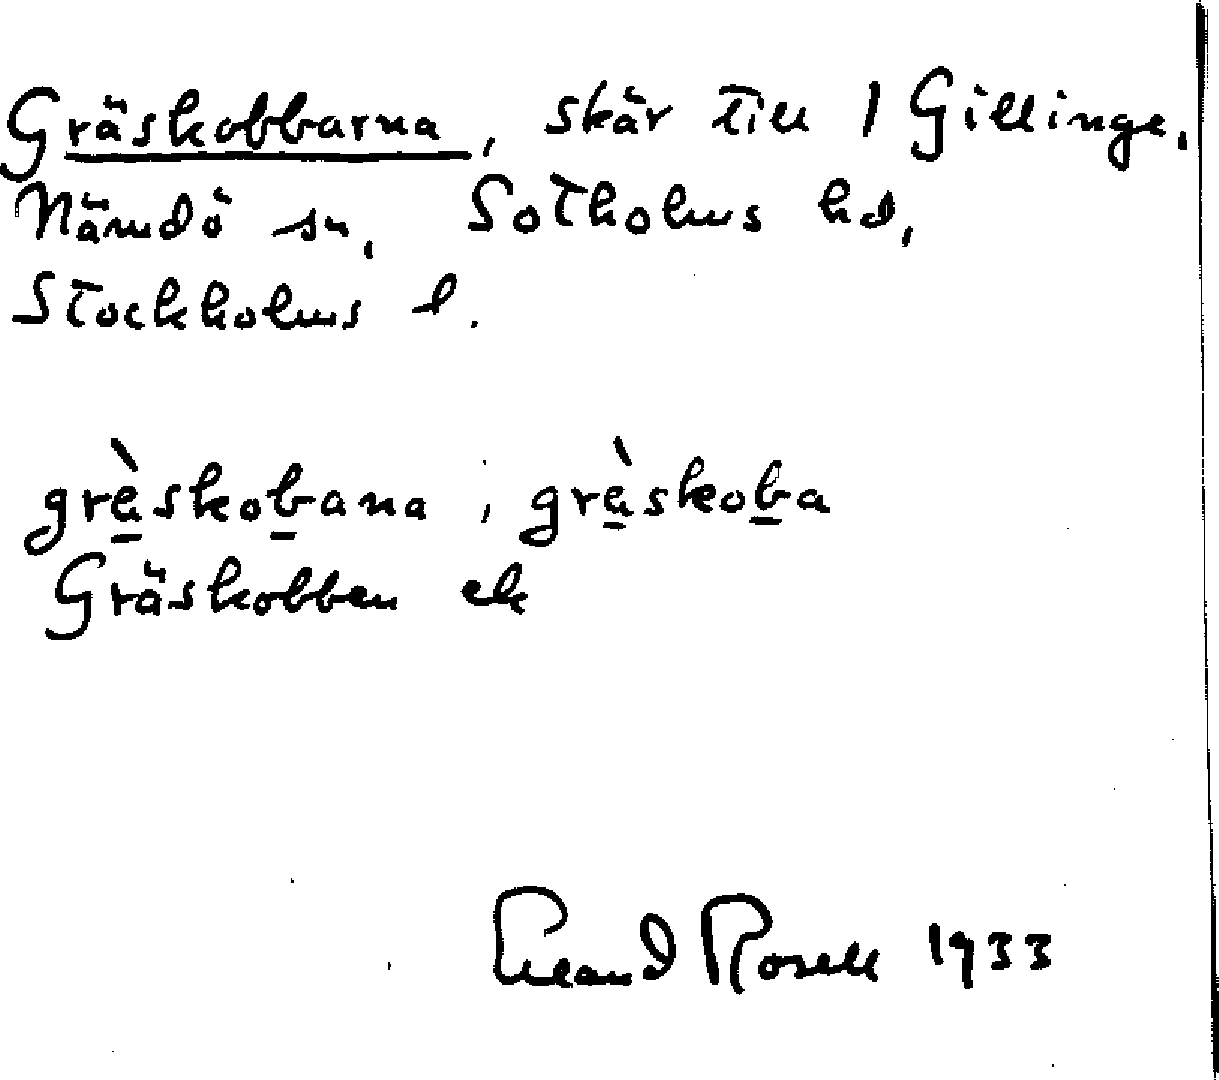 Gräskobbarna, skär till 1 Gillinge,
Nämdö sn, Sotholms hd,
Stockholms l.
grä̀skob̲ana, grä̀skob̲a
Gräskobben ek
Erland Rosell 1933